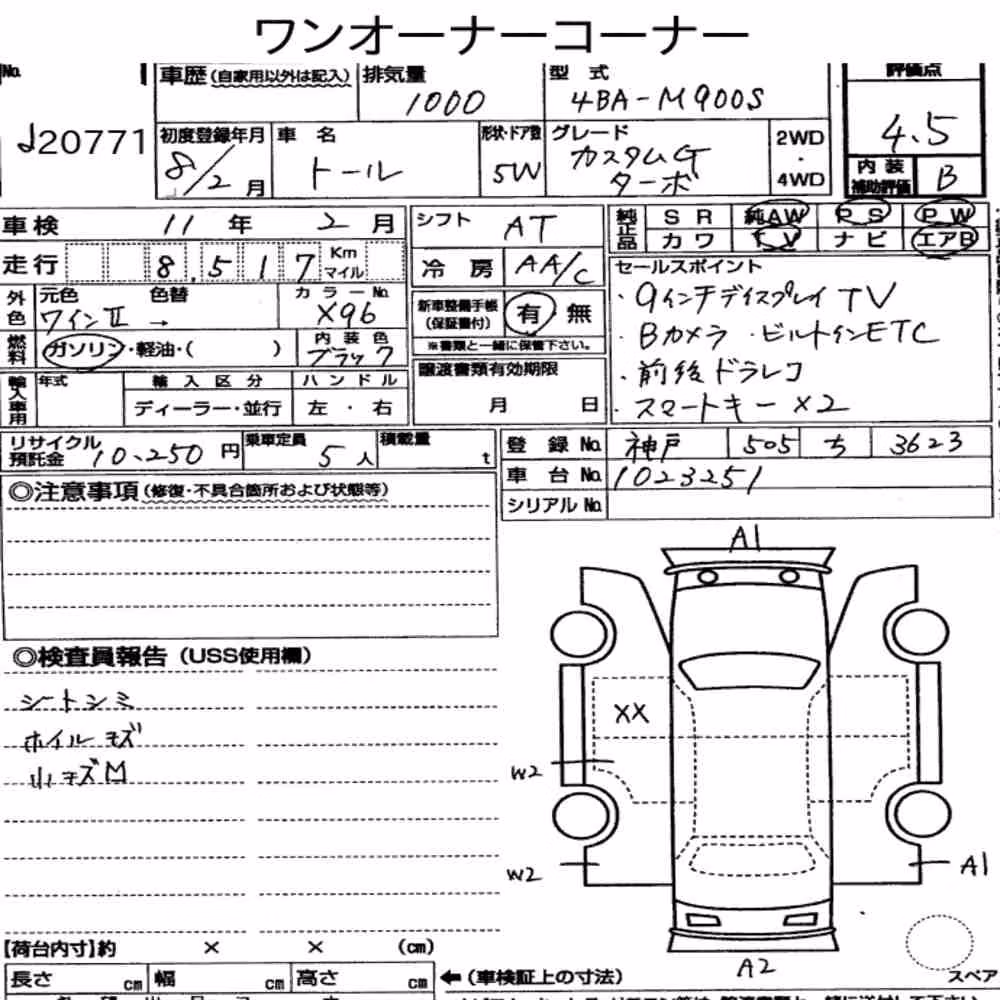 ワンオーナーコーナー
No.
車歴(自家用以外は記入) 排気量 型式 評価点
1000 4BA-M900S
20771
4.5
初度登録年月 車名 形状・ドア数 グレード 2WD・4WD
8/2月 トール 5W カスタムG ターボ
内装補助評価 B
車検 11年 2月 シフト AT
純正品 SR 純AW PS PW
カワ TV ナビ エアB
走行 8,517 Km マイル
冷房 AA/C
セールスポイント
・9インチディスプレイTV
・Bカメラ ・ビルトインETC
・前後ドラレコ
・スマートキー×2
外色 元色 色替 カラーNo.
ワインII → X96
新車整備手帳(保証書付) 有 無
※書類と一緒に保管下さい。
燃料 ガソリン・軽油・( ) 内装色 ブラック
譲渡書類有効期限
月 日
輸入車用 年式 輸入区分 ハンドル
ディーラー・並行 左・右
リサイクル預託金 10,250円 乗車定員 5人 積載量 t
登録No. 神戸 505 ち 3623
車台No. 1023251
シリアルNo.
◎注意事項(修復・不具合箇所および状態等)
◎検査員報告(USS使用欄)
シートシミ
ホイルキズ
小キズM
A1
XX
W2
W2
A1
A2
スペア
【荷台内寸】約 × × (cm)
長さ cm 幅 cm 高さ cm ←(車検証上の寸法)